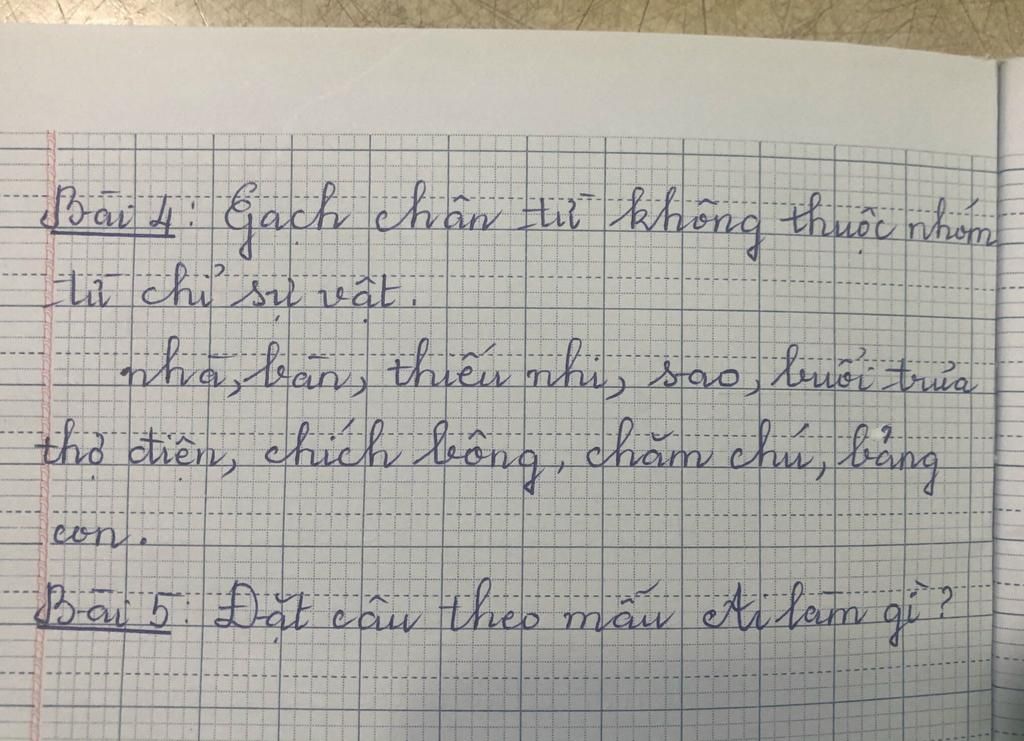 Bài 4: Gạch chân từ không thuộc nhóm
từ chỉ sự vật.
nhà, bàn, thiếu nhi, sao, buổi trưa
thợ điện, chích bông, chăm chú, bảng
con.
Bài 5: Đặt câu theo mẫu Ai làm gì?